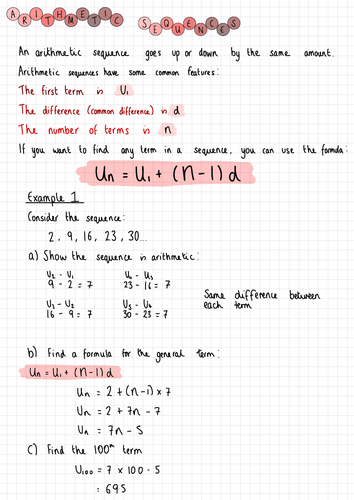 ARITHMETIC SEQUENCES
An arithmetic sequence goes up or down by the same amount.
Arithmetic sequences have some common features:
The first term is U₁
The difference (common difference) is d
The number of terms is n
If you want to find any term in a sequence, you can use the formula:
Un = U₁ + (n-1)d
Example 1
Consider the sequence:
2, 9, 16, 23, 30...
a) Show the sequence is arithmetic:
U₂ - U₁
9 - 2 = 7
U₄ - U₃
23 - 16 = 7
U₃ - U₂
16 - 9 = 7
U₅ - U₄
30 - 23 = 7
Same difference between
each term
b) Find a formula for the general term:
Un = U₁ + (n-1)d
Un = 2 + (n-1) × 7
Un = 2 + 7n - 7
Un = 7n - 5
c) Find the 100ᵗʰ term
U₁₀₀ = 7 × 100 - 5
= 695